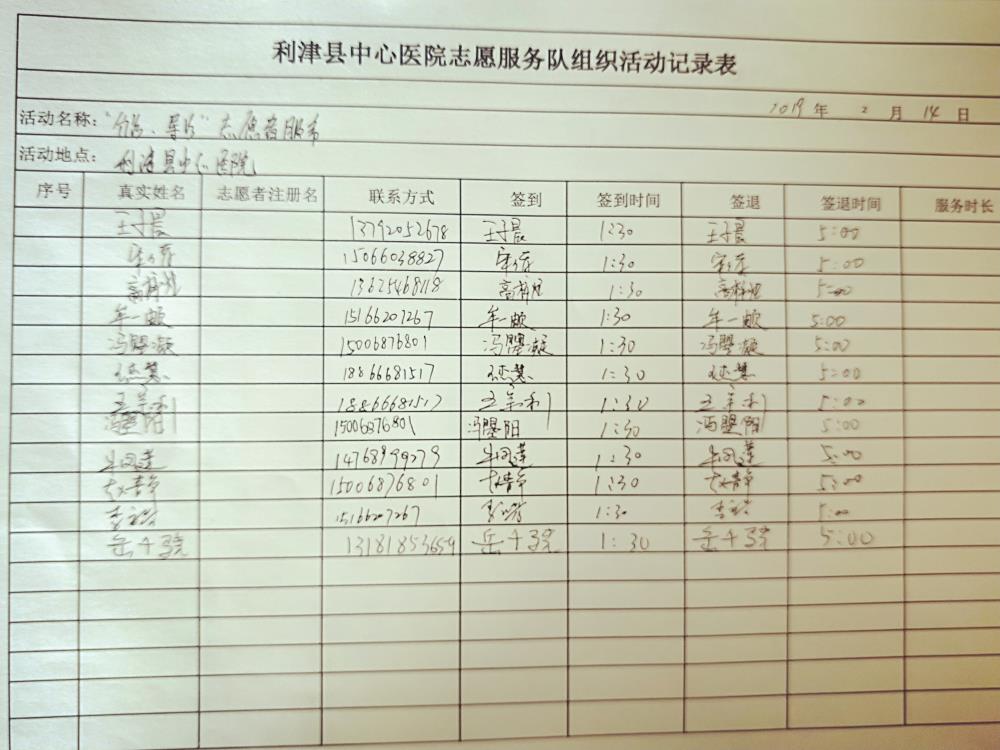 利津县中心医院志愿服务队组织活动记录表
2019 年 2 月 14 日
活动名称：“ 导诊”志愿者服务
活动地点： 利津县中心医院
序号 真实姓名 志愿者注册名 联系方式 签到 签到时间 签退 签退时间 服务时长
王子晨 13792052678 王子晨 1:30 王子晨 5:00
15066038827 1:30 5:00
13625468118 1:30 5:00
年一敏 15166207267 年一敏 1:30 年一敏 5:00
冯曌凝 15006876801 冯曌凝 1:30 冯曌凝 5:00
18866681517 1:30 5:00
18866681517 1:30 5:00
冯曌阳 15006876801 冯曌阳 1:30 冯曌阳 5:00
牛风莲 14768999279 牛风莲 1:30 牛风莲 5:00
15006876801 1:30 5:00
15166207267 1:30 5:00
岳千骁 13181853659 岳千骁 1:30 岳千骁 5:00